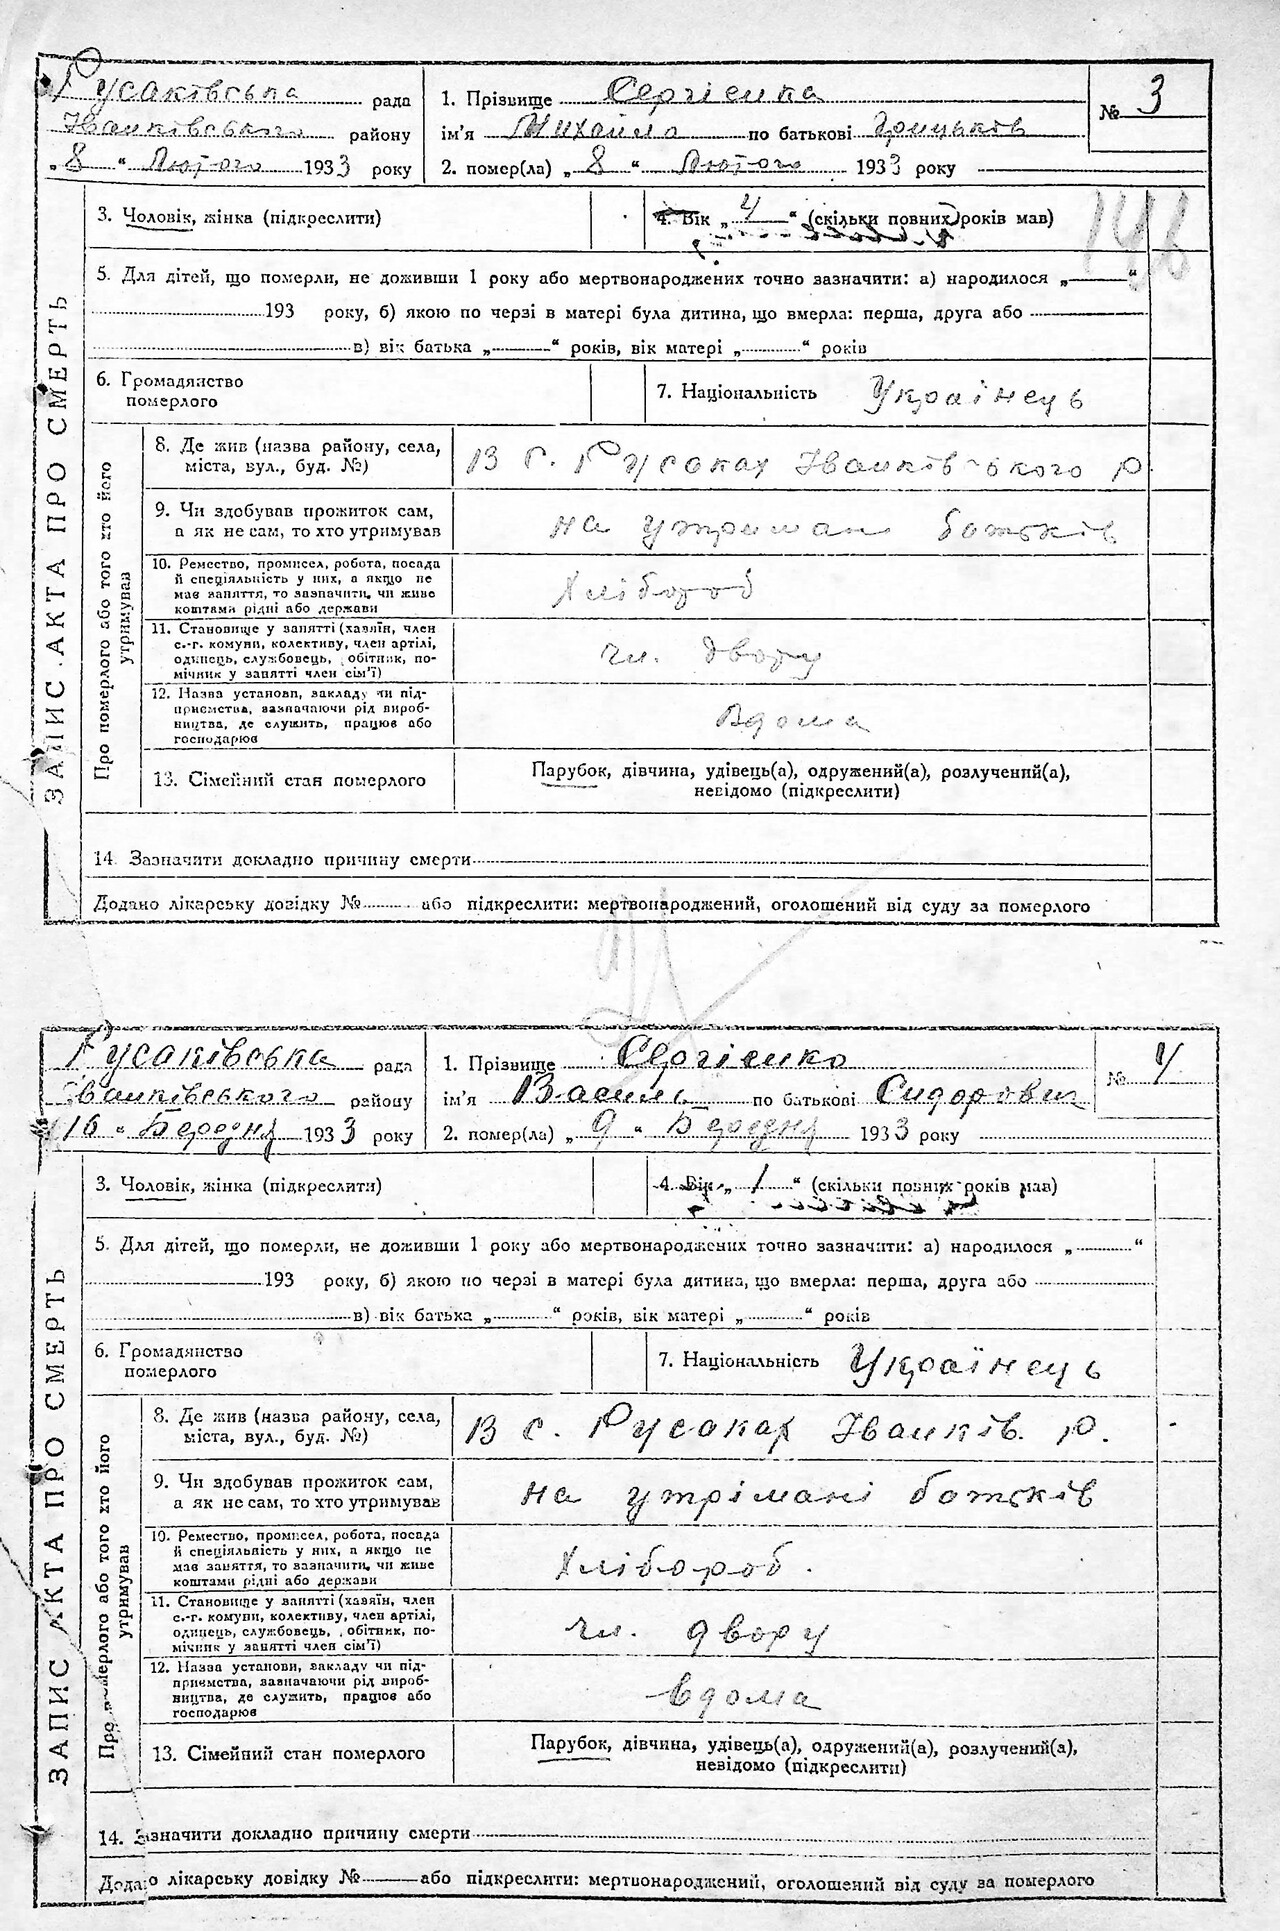 Русаківська рада
Іванківського району
„8“ Лютого 1933 року
1. Прізвище Сергієнка
ім'я Михайло по батькові Грицьків
2. помер(ла) „8“ Лютого 1933 року
№ 3
3. Чоловік, жінка (підкреслити)
4. Вік „4“ (скільки повних років мав)
146
5. Для дітей, що померли, не доживши 1 року або мертвонароджених точно зазначити: а) народилося „ “
193 року, б) якою по черзі в матері була дитина, що вмерла: перша, друга або
в) вік батька „ “ років, вік матері „ “ років
6. Громадянство
померлого
7. Національність Українець
ЗАПИС АКТА ПРО СМЕРТЬ
Про померлого або того хто його
утримував
8. Де жив (назва району, села,
міста, вул., буд. №)
В с. Русаках Іванківського р
9. Чи здобував прожиток сам,
а як не сам, то хто утримував
на утриман батьків
10. Ремество, промисел, робота, посада
й спеціяльність у них, а якщо не
має заняття, то зазначити, чи живе
коштами рідні або держави
Хлібороб
11. Становище у занятті (хазяїн, член
с.-г. комуни, колективу, член артілі,
одинець, службовець, обітник, по-
мічник у занятті член сім'ї)
чл. двору
12. Назва установи, закладу чи під-
приємства, зазначаючи рід вироб-
ництва, де служить, працює або
господарює
Вдома
13. Сімейний стан померлого
Парубок, дівчина, удівець(а), одружений(а), розлучений(а),
невідомо (підкреслити)
14. Зазначити докладно причину смерти
Додано лікарську довідку № або підкреслити: мертвонароджений, оголошений від суду за померлого
Русаківська рада
Іванківського району
„16“ Березня 1933 року
1. Прізвище Сергієнко
ім'я Василь по батькові Сидорович
2. помер(ла) „9“ Березня 1933 року
№ 4
3. Чоловік, жінка (підкреслити)
4. Вік „1“ (скільки повних років мав)
5. Для дітей, що померли, не доживши 1 року або мертвонароджених точно зазначити: а) народилося „ “
193 року, б) якою по черзі в матері була дитина, що вмерла: перша, друга або
в) вік батька „ “ років, вік матері „ “ років
6. Громадянство
померлого
7. Національність Українець
ЗАПИС АКТА ПРО СМЕРТЬ
Про померлого або того хто його
утримував
8. Де жив (назва району, села,
міста, вул., буд. №)
В с. Русаках Іванків. р.
9. Чи здобував прожиток сам,
а як не сам, то хто утримував
на утрімані батьків
10. Ремество, промисел, робота, посада
й спеціяльність у них, а якщо не
має заняття, то зазначити, чи живе
коштами рідні або держави
Хлібороб.
11. Становище у занятті (хазяїн, член
с.-г. комуни, колективу, член артілі,
одинець, службовець, обітник, по-
мічник у занятті член сім'ї)
чл. двору
12. Назва установи, закладу чи під-
приємства, зазначаючи рід вироб-
ництва, де служить, працює або
господарює
вдома
13. Сімейний стан померлого
Парубок, дівчина, удівець(а), одружений(а), розлучений(а),
невідомо (підкреслити)
14. Зазначити докладно причину смерти
Додано лікарську довідку № або підкреслити: мертвонароджений, оголошений від суду за померлого